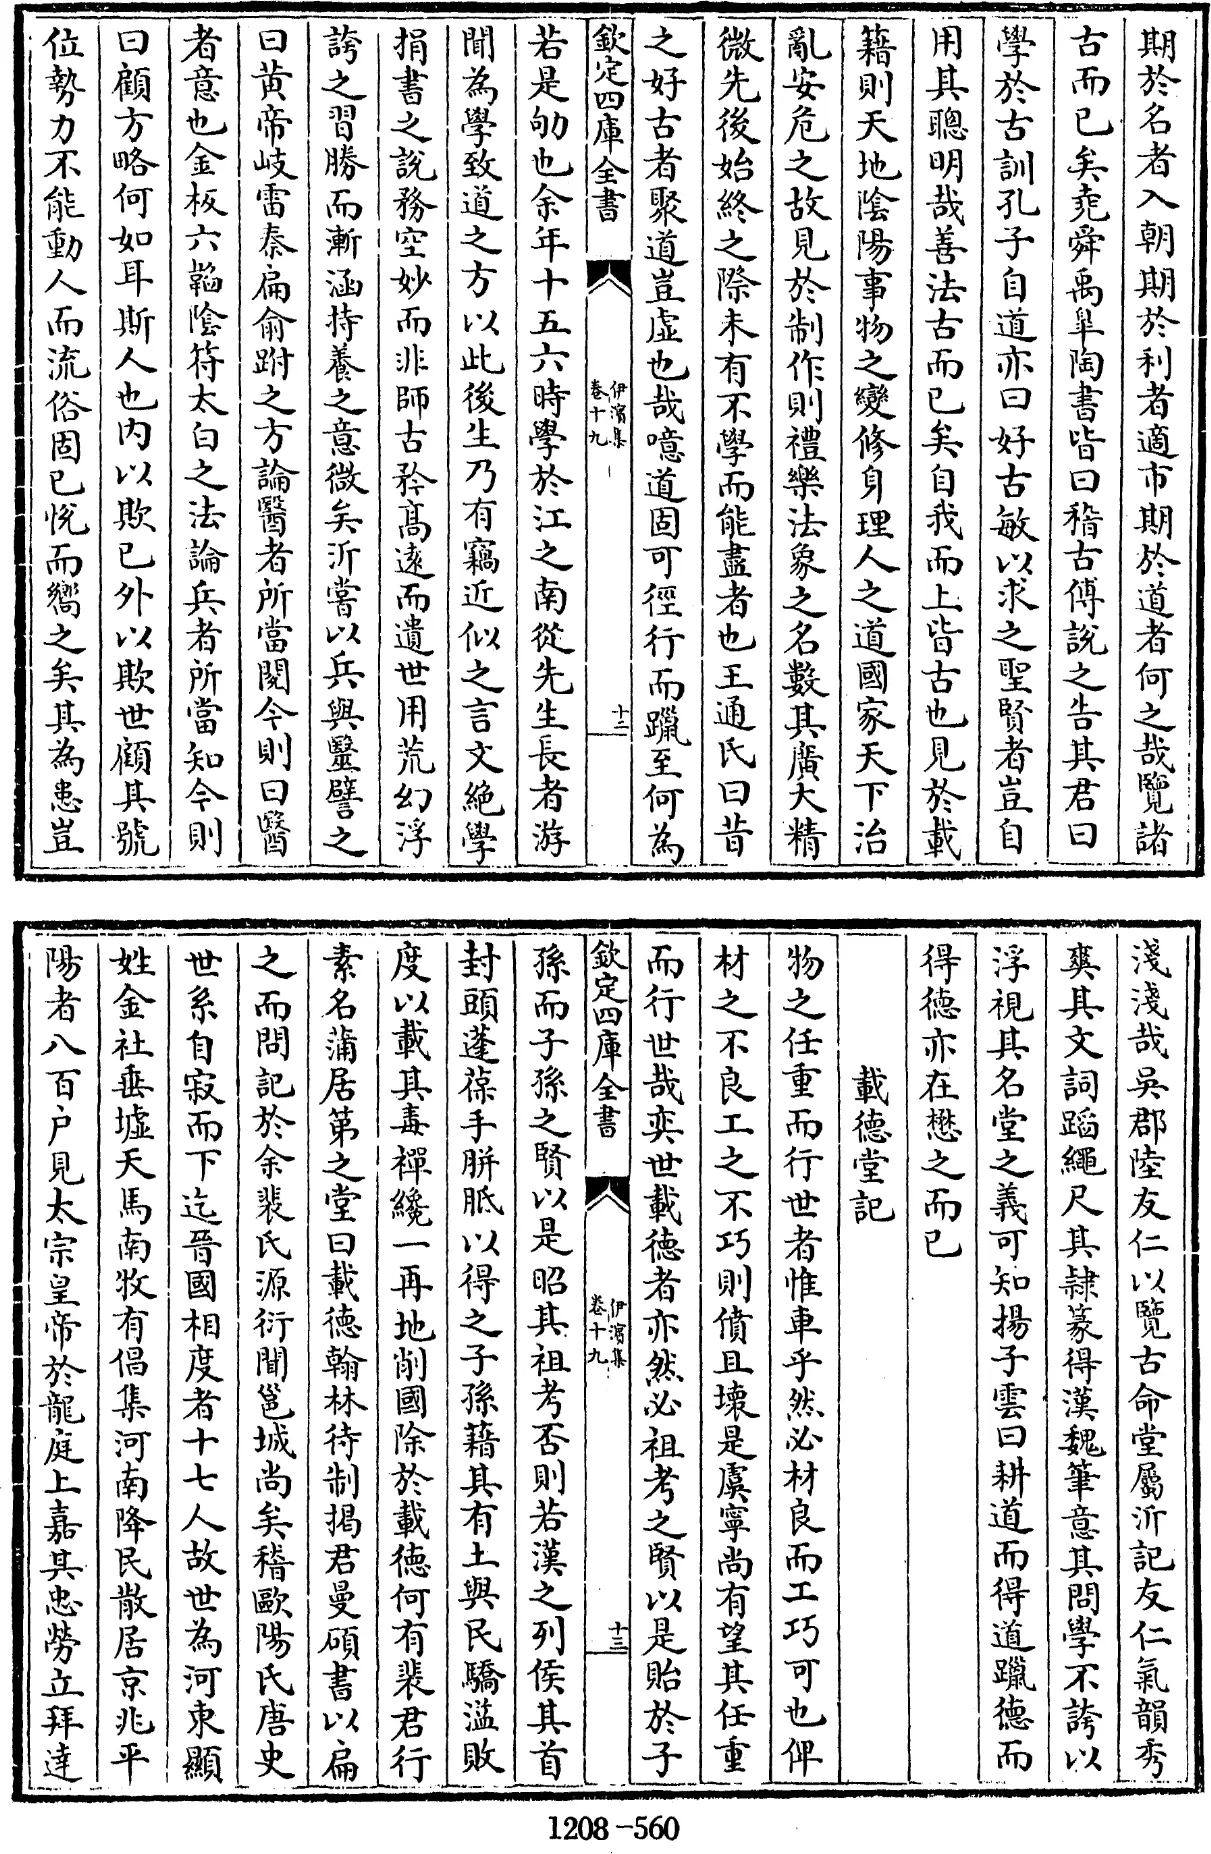 期於名者入朝期於利者適市期於道者何之哉覽諸
古而已矣堯舜禹臯陶書皆曰稽古傅說之告其君曰
學於古訓孔子自道亦曰好古敏以求之聖賢者豈自
用其聰明哉善法古而已矣自我而上皆古也見於載
籍則天地陰陽事物之變修身理人之道國家天下治
亂安危之故見於制作則禮樂法象之名數其廣大精
微先後始終之際未有不學而能盡者也王通氏曰昔
之好古者聚道豈虛也哉噫道固可徑行而躐至何為
欽定四庫全書
伊濱集
卷十九
十二
若是劬也余年十五六時學於江之南從先生長者游
聞為學致道之方以此後生乃有竊近似之言文絕學
捐書之説務空妙而非師古矜高遠而遺世用荒幻浮
誇之習勝而漸涵持養之意微矣沂嘗以兵與毉譬之
曰黄帝岐雷秦扁俞跗之方論醫者所當閱今則曰醫
者意也金板六韜陰符太白之法論兵者所當知今則
曰顧方略何如耳斯人也内以欺已外以欺世顧其號
位勢力不能動人而流俗固已恱而嚮之矣其為患豈
淺淺哉吳郡陸友仁以覽古命堂屬沂記友仁氣韻秀
爽其文詞蹈繩尺其隸篆得漢魏筆意其問學不誇以
浮視其名堂之義可知揚子雲曰耕道而得道躐德而
得德亦在懋之而已
載德堂記
物之任重而行世者惟車乎然必材良而工巧可也俾
材之不良工之不巧則僨且壞是虞寧尚有望其任重
而行世哉奕世載德者亦然必祖考之賢以是貽於子
欽定四庫全書
伊濱集
卷十九
十三
孫而子孫之賢以是昭其祖考否則若漢之列侯其首
封頭蓬葆手胼胝以得之子孫藉其有土與民驕溢敗
度以載其毒禪纔一再地削國除於載德何有裴君行
素名蒲居第之堂曰載德翰林待制揭君曼碩書以扁
之而問記於余裴氏源衍聞邕城尚矣稽歐陽氏唐史
世系自寂而下迄晉國相度者十七人故世為河東顯
姓金社垂墟天馬南牧有倡集河南降民散居京兆平
陽者八百户見太宗皇帝於龍庭上嘉其忠勞立拜達
1208-560